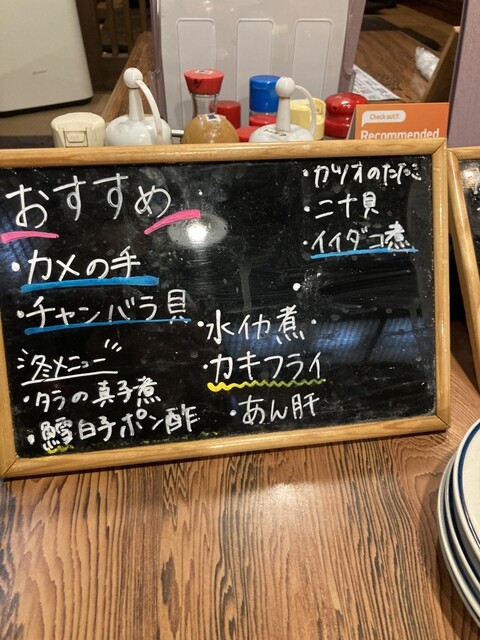 Check out!!
Recommended
おすすめ
・カメの手
・チャンバラ貝
冬メニュー
・タラの真子煮
・鱈白子ポン酢
・水イカ煮・
・カキフライ
・あん肝
・カツオのたたき
・ニナ貝
・イイダコ煮